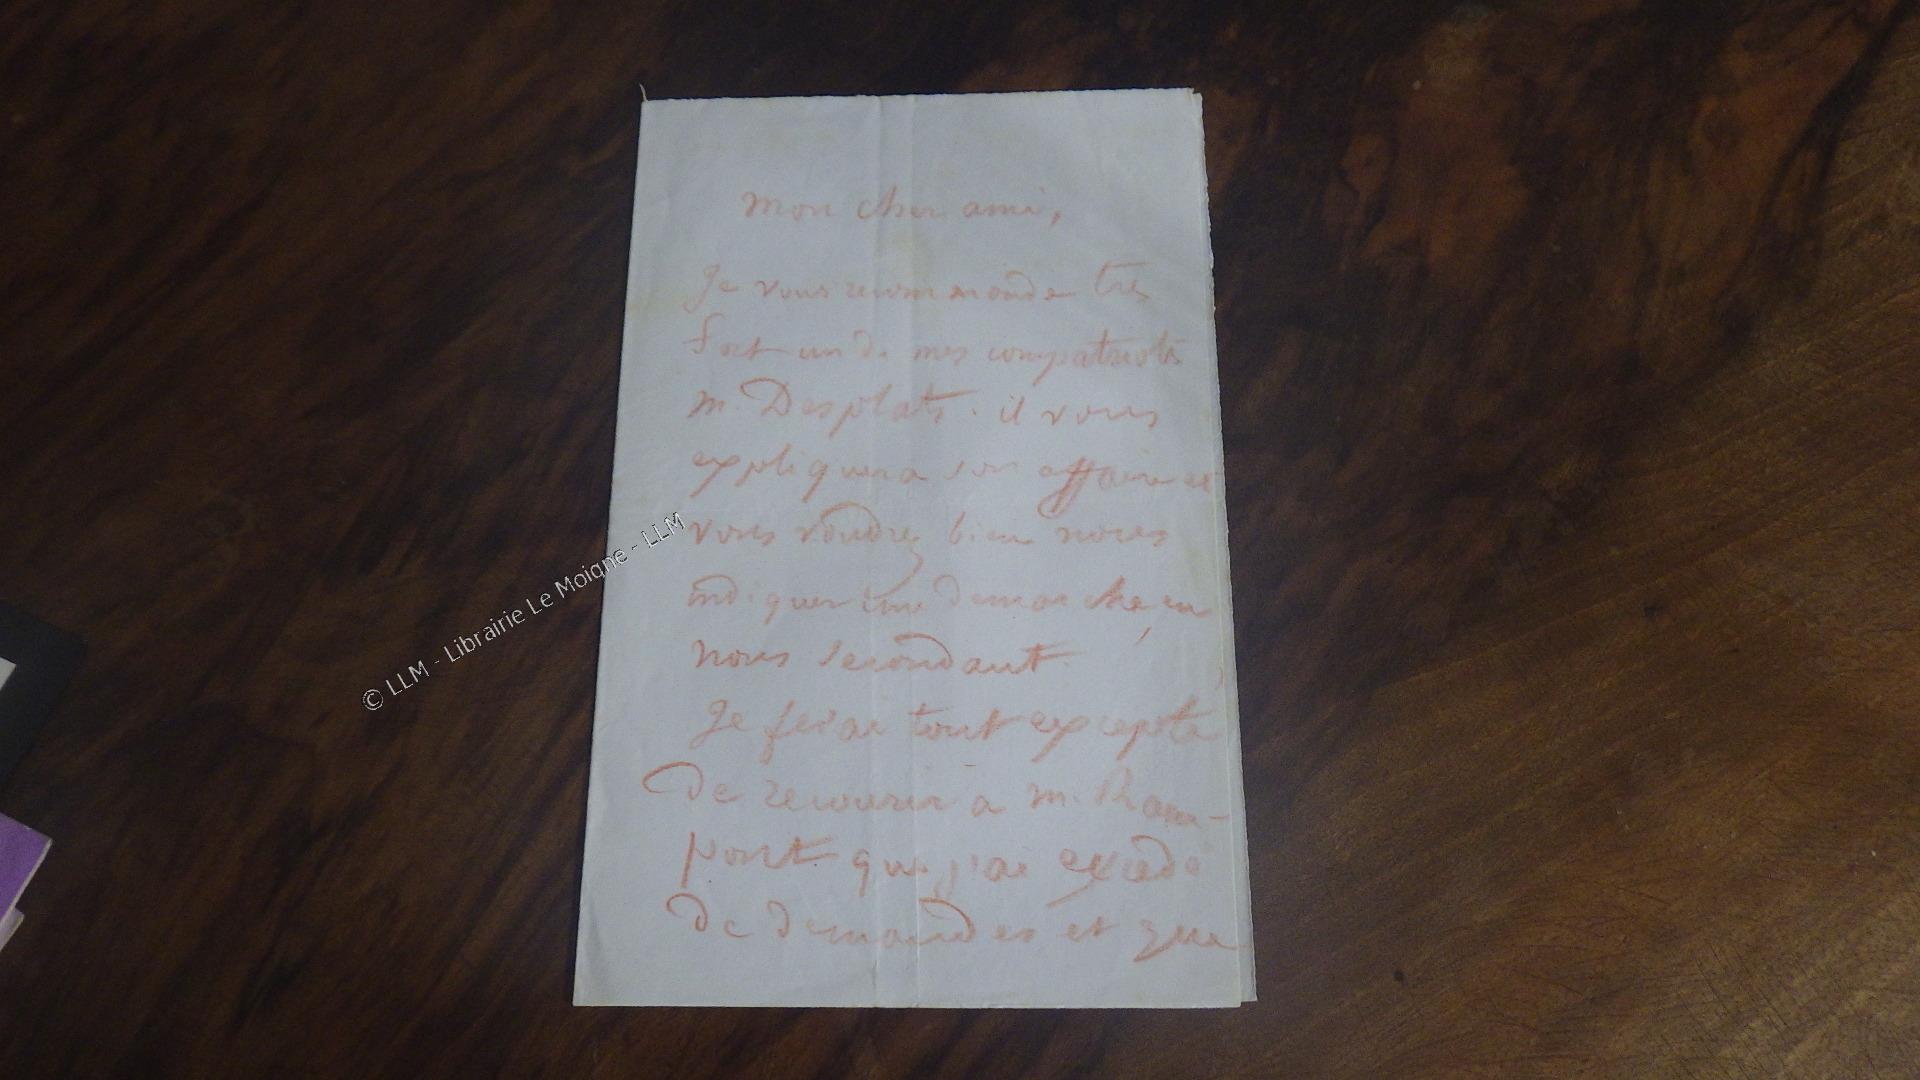 Mon cher ami,
Je vous recommande très
fort un de mes compatriotes
M. Desplats. il vous
expliquera son affaire et
vous voudrez bien nous
indiquer une demarche, en
nous secondant.
Je ferai tout excepté
de recourir à M. Ram-
pont que j'ai excédé
de demandes et que
© LLM - Librairie Le Moigne - LLM